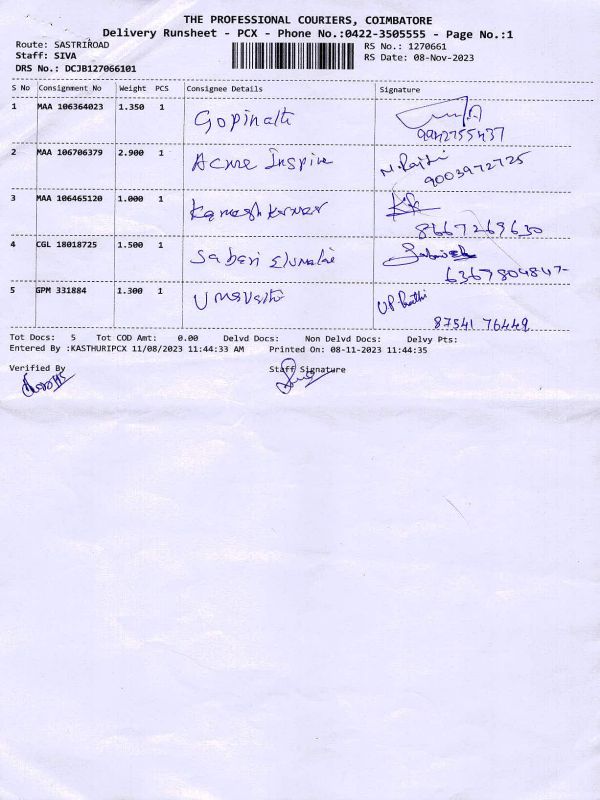 THE PROFESSIONAL COURIERS, COIMBATORE
Delivery Runsheet - PCX - Phone No.:0422-3505555 - Page No.:1
Route: SASTRIROAD RS No.: 1270661
Staff: SIVA RS Date: 08-Nov-2023
DRS No.: DCJB127066101
S No Consignment No Weight PCS Consignee Details Signature
1 MAA 106364023 1.350 1 Gopinath
9942755437
2 MAA 106706379 2.900 1 Acme Inspire N. Rajhi
9003972725
3 MAA 106465120 1.000 1 Kamesh kumar
8667269630
4 CGL 18018725 1.500 1 Sabari Elumalai
6367804847
5 GPM 331884 1.300 1 Umavathi
87541 76449
Tot Docs: 5 Tot COD Amt: 0.00 Delvd Docs: Non Delvd Docs: Delvy Pts:
Entered By :KASTHURIPCX 11/08/2023 11:44:33 AM Printed On: 08-11-2023 11:44:35
Verified By Staff Signature